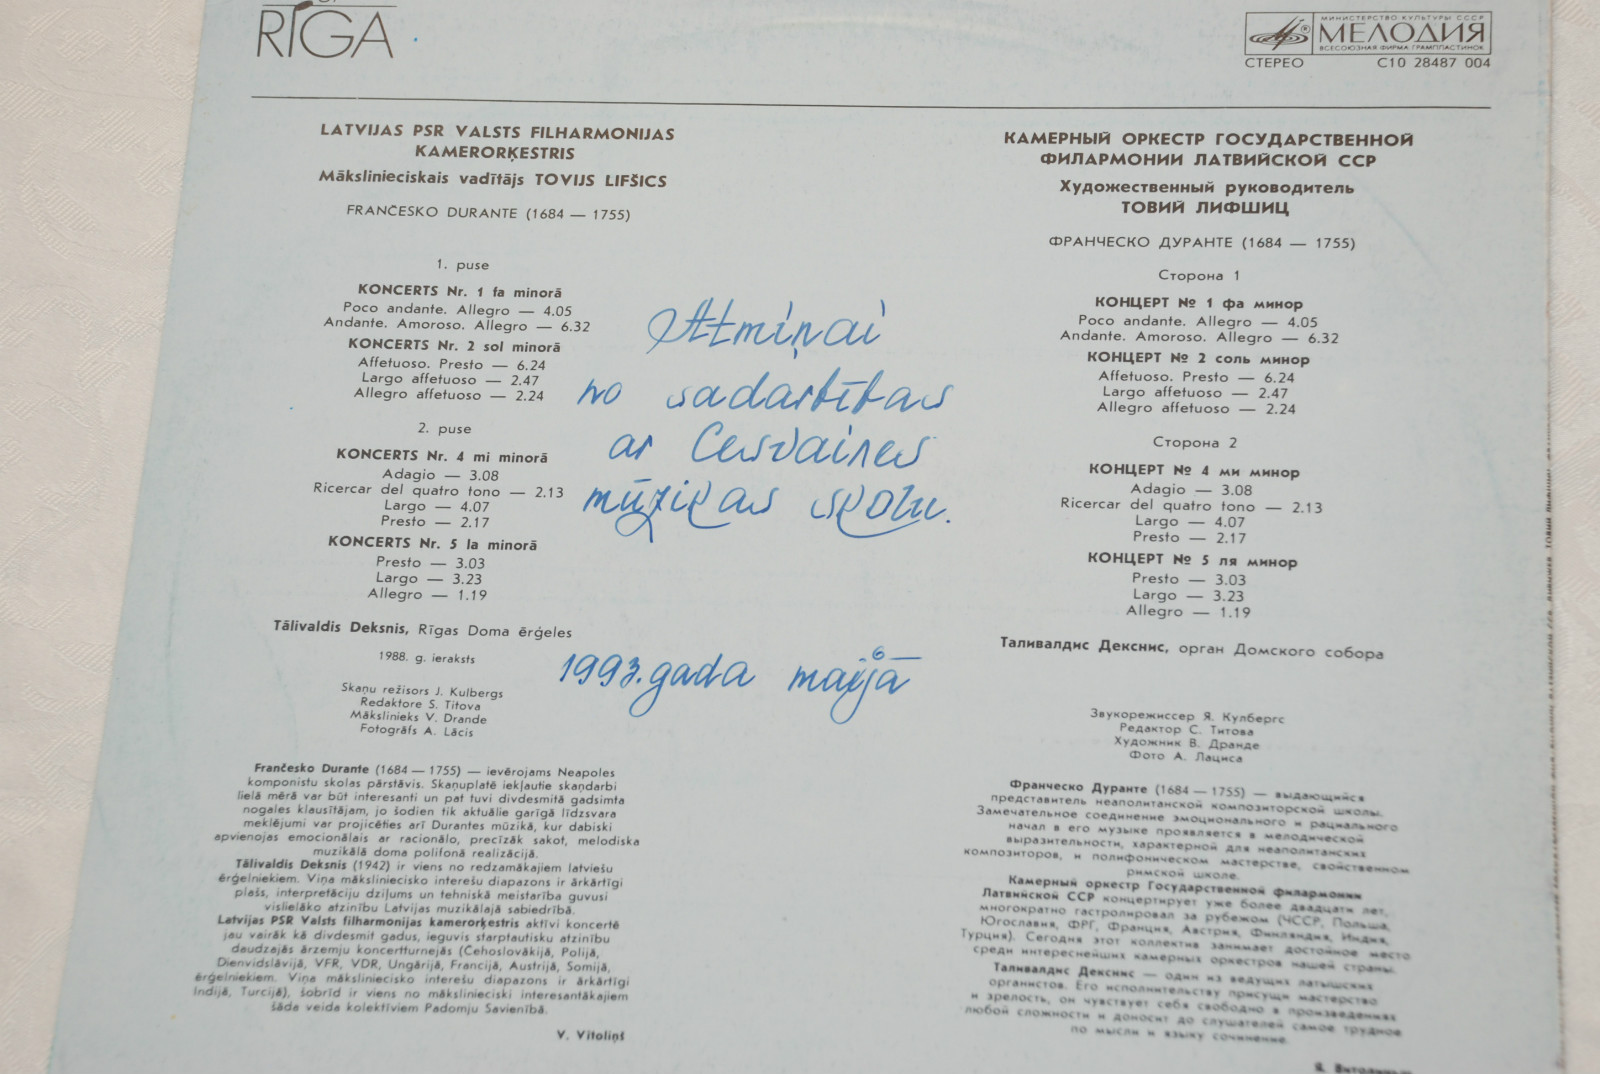 RĪGA
МИНИСТЕРСТВО КУЛЬТУРЫ СССР
МЕЛОДИЯ
ВСЕСОЮЗНАЯ ФИРМА ГРАМПЛАСТИНОК
СТЕРЕО С10 28487 004
LATVIJAS PSR VALSTS FILHARMONIJAS
KAMERORĶESTRIS
Mākslinieciskais vadītājs TOVIJS LIFŠICS
FRANČESKO DURANTE (1684 — 1755)
1. puse
KONCERTS Nr. 1 fa minorā
Poco andante. Allegro — 4.05
Andante. Amoroso. Allegro — 6.32
KONCERTS Nr. 2 sol minorā
Affetuoso. Presto — 6.24
Largo affetuoso — 2.47
Allegro affetuoso — 2.24
2. puse
KONCERTS Nr. 4 mi minorā
Adagio — 3.08
Ricercar del quatro tono — 2.13
Largo — 4.07
Presto — 2.17
KONCERTS Nr. 5 la minorā
Presto — 3.03
Largo — 3.23
Allegro — 1.19
Tālivaldis Deksnis, Rīgas Doma ērģeles
1988. g. ieraksts
Skaņu režisors J. Kulbergs
Redaktore S. Titova
Mākslinieks V. Drande
Fotogrāfs A. Lācis
Frančesko Durante (1684 — 1755) — ievērojams Neapoles
komponistu skolas pārstāvis. Skaņuplatē iekļautie skaņdarbi
lielā mērā var būt interesanti un pat tuvi divdesmitā gadsimta
nogales klausītājam, jo šodien tik aktuālie garīgā līdzsvara
meklējumi var projicēties arī Durantes mūzikā, kur dabiski
apvienojas emocionālais ar racionālo, precīzāk sakot, melodiska
muzikālā doma polifonā realizācijā.
Tālivaldis Deksnis (1942) ir viens no redzamākajiem latviešu
ērģelniekiem. Viņa māksliniecisko interešu diapazons ir ārkārtīgi
plašs, interpretāciju dziļums un tehniskā meistarība guvusi
vislielāko atzinību Latvijas muzikālajā sabiedrībā.
Latvijas PSR Valsts filharmonijas kamerorķestris aktīvi koncertē
jau vairāk kā divdesmit gadus, ieguvis starptautisku atzinību
daudzajās ārzemju koncertturnejās (Čehoslovākijā, Polijā,
Dienvidslāvijā, VFR, VDR, Ungārijā, Francijā, Austrijā, Somijā,
ērģelniekiem. Viņa māksliniecisko interešu diapazons ir ārkārtīgi
Indijā, Turcijā), šobrīd ir viens no mākslinieciski interesantākajiem
šāda veida kolektīviem Padomju Savienībā.
V. Vītoliņš
Atmiņai
no sadarbības
ar Cesvaines
mūzikas skolu.
1993. gada 6 maijā
КАМЕРНЫЙ ОРКЕСТР ГОСУДАРСТВЕННОЙ
ФИЛАРМОНИИ ЛАТВИЙСКОЙ ССР
Художественный руководитель
ТОВИЙ ЛИФШИЦ
ФРАНЧЕСКО ДУРАНТЕ (1684 — 1755)
Сторона 1
КОНЦЕРТ № 1 фа минор
Poco andante. Allegro — 4.05
Andante. Amoroso. Allegro — 6.32
КОНЦЕРТ № 2 соль минор
Affetuoso. Presto — 6.24
Largo affetuoso — 2.47
Allegro affetuoso — 2.24
Сторона 2
КОНЦЕРТ № 4 ми минор
Adagio — 3.08
Ricercar del quatro tono — 2.13
Largo — 4.07
Presto — 2.17
КОНЦЕРТ № 5 ля минор
Presto — 3.03
Largo — 3.23
Allegro — 1.19
Таливалдис Декснис, орган Домского собора
Звукорежиссер Я. Кулбергс
Редактор С. Титова
Художник В. Дранде
Фото А. Лациса
Франческо Дуранте (1684 — 1755) — выдающийся
представитель неаполитанской композиторской школы.
Замечательное соединение эмоционального и рационального
начал в его музыке проявляется в мелодической
выразительности, характерной для неаполитанских
композиторов, и полифоническом мастерстве, свойственном
римской школе.
Камерный оркестр Государственной филармонии
Латвийской ССР концертирует уже более двадцати лет,
многократно гастролировал за рубежом (ЧССР, Польша,
Югославия, ФРГ, Франция, Австрия, Финляндия, Индия,
Турция). Сегодня этот коллектив занимает достойное место
среди интереснейших камерных оркестров нашей страны.
Таливалдис Декснис — один из ведущих латышских
органистов. Его исполнительству присущи мастерство
и зрелость, он чувствует себя свободно в произведениях
любой сложности и доносит до слушателей самое трудное
по мысли и языку сочинение.